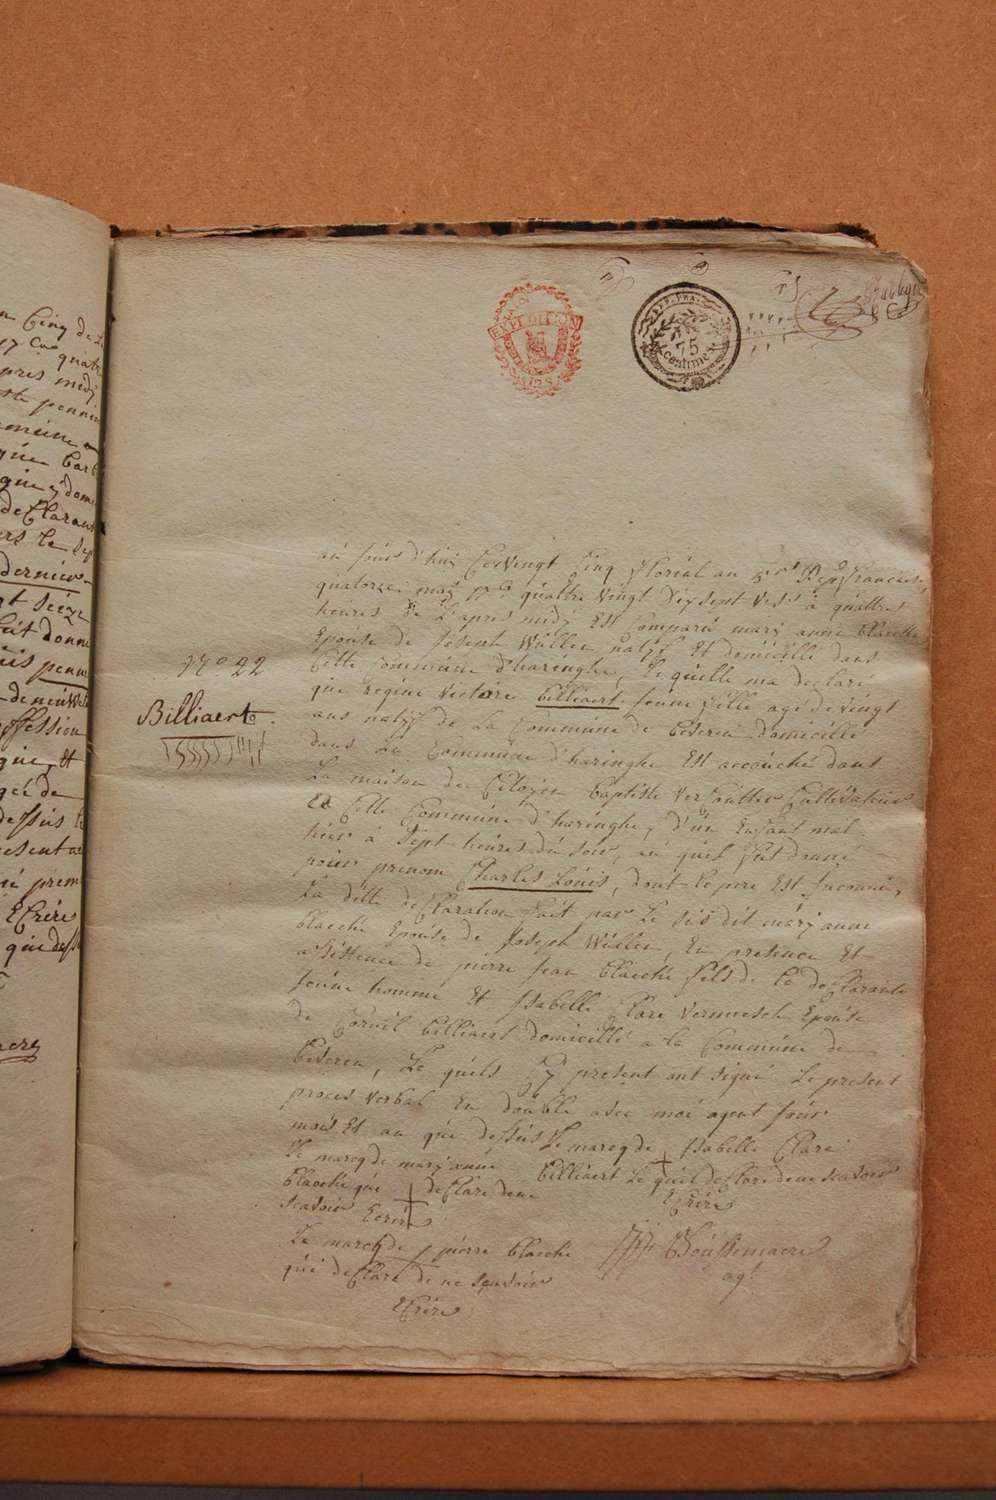 EXPEDITION
REP. FRA.
75
centimes
N° 22
Billiaert
au jour d'hui Ce vingt Cinq florial an 5me Repe francaise
quatorze maÿ 17ce quattre vingt dixsept vest à quattres
heures de L'apres midÿ Est Comparu marÿ anne blaeche
Epouse de Joseph Wullen natif Et domicillé dans
Cette Commune d'haringhe, Le quelle ma declaré
que regine Victoire billiaert jeune fille agé de vingt
ans natif de La Commune de beveren domicillé
dans La Commune d'haringhe Est accouché dans
La maison du Citoÿen baptiste Vercoutter Cultivateur
de Cette Commune d'haringhe, d'un Enfant mal
hier à Sept heures du soir, au quel fut donné
pour prenom Charles Louis, dont Le pere Est Inconnu,
La ditte declaration fait par Le susdit marÿ anne
blaeche Epouse de Joseph Wullen, En presence Et
assistence de pierre jean blaeche fils de Le declarante
jeune homme Et Isabelle Clare Vermeesch Epouse
de Corneil billiaert domicillé a la Commune de
beveren, Le quels present ont signé Le present
proces verbal En double avec moi agent jour
mois Et an que dessus
Le marcq de marÿ anne
blaeche qui declare de ne
scavoir Ecrire
Le marcq de Isabelle Clare
billiaert Le quel declare de ne scavoir
Ecrire
Le marcq de pierre blaeche
qui declare de ne scavoir
Ecrire
Boussemaere
agt
dernier